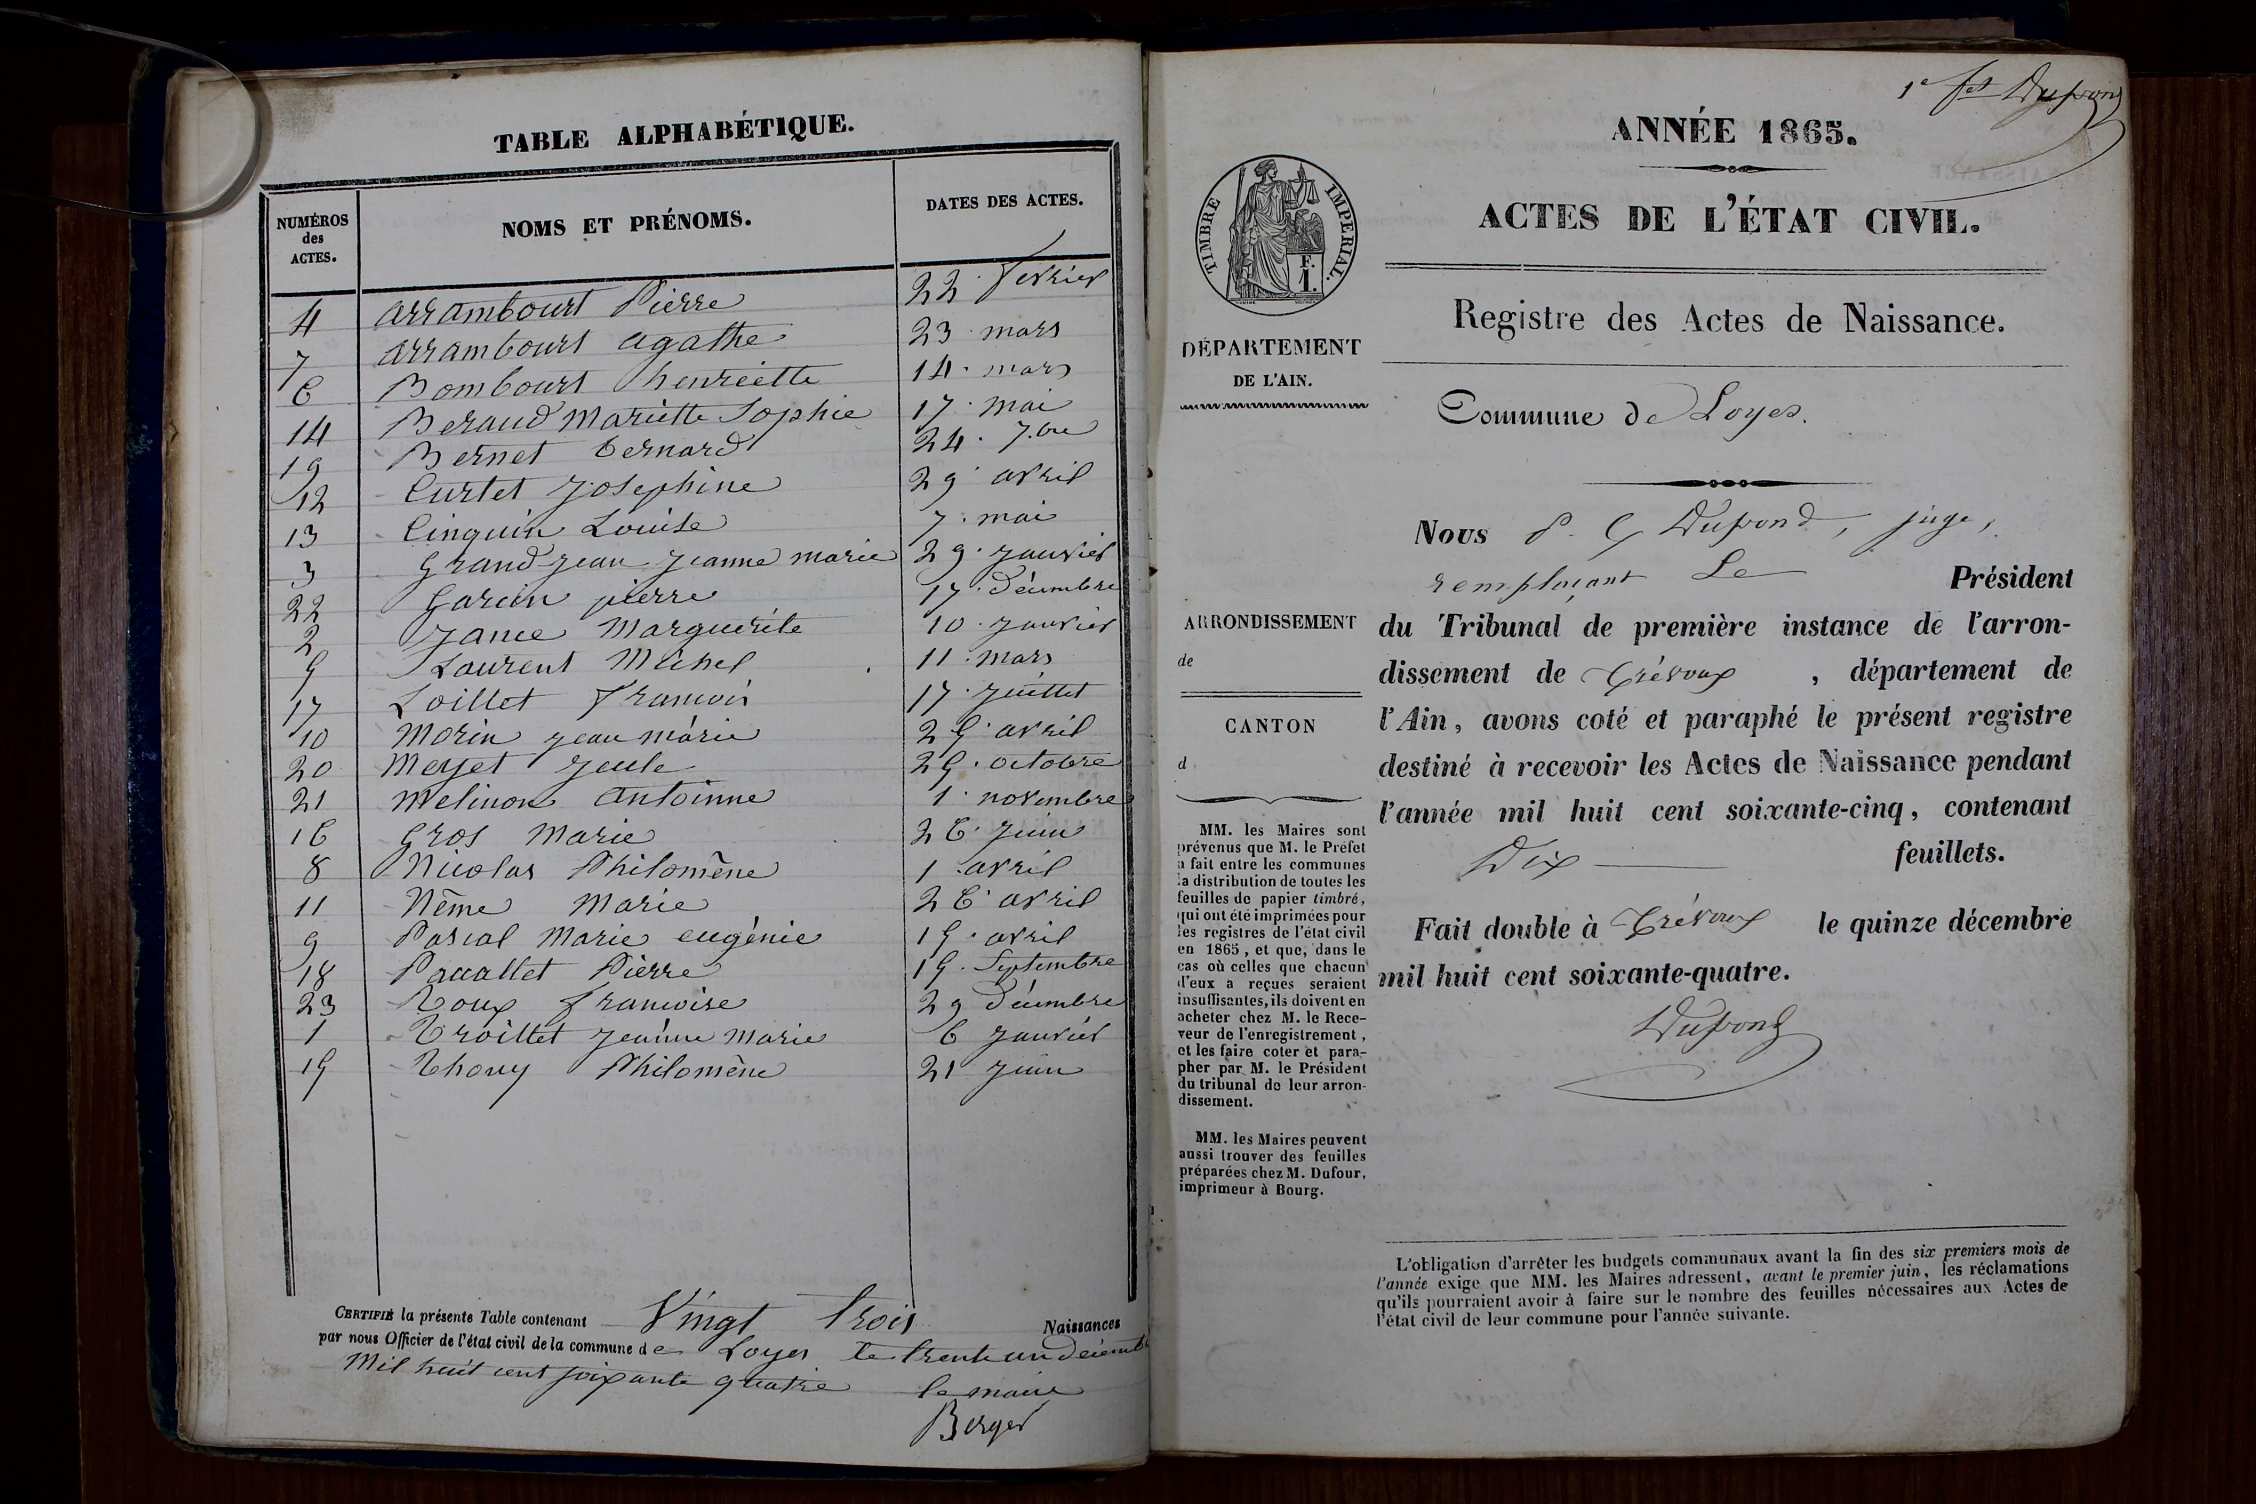 TABLE ALPHABÉTIQUE.
NUMÉROS des ACTES. NOMS ET PRÉNOMS. DATES DES ACTES.
4 Arrambourt Pierre 22 fevrier
7 Arrambourt agathe 23 mars
6 Bombourt henriette 14 mars
14 Beraud Mariette Sophie 17 mai
19 Bernet bernard 24 7.bre
12 Curtet Josephine 29 avril
13 Cinquin Louise 7 mai
3 Grand-jean Jeanne marie 29 janvier
22 Garcin pierre 17 Décembre
2 Jance Marguerite 10 janvier
5 Laurent Michel 11 mars
17 Loillet francois 17 juillet
10 Morin jean marie 25 avril
20 Meyet jeule 25 octobre
21 Melinon Antoinne 1 novembre
16 Gros Marie 26 juin
8 Nicolas Philomène 1 avril
11 Nême Marie 26 avril
9 Pascal Marie eugénie 15 avril
18 Pacallet Pierre 15 Septembre
23 Roux francoise 29 Décembre
1 Troillet jeanne Marie 6 janvier
15 Thovy Philomène 21 juin
CERTIFIÉ la présente Table contenant Vingt trois Naissances
par nous Officier de l'état civil de la commune de Loyes le trente un Décembre
Mil huit cent soixante quatre le maire
Berger
1e fet Dupond
ANNÉE 1865.
TIMBRE IMPERIAL.
F.
1.
ACTES DE L'ÉTAT CIVIL.
Registre des Actes de Naissance.
DÉPARTEMENT
DE L'AIN.
Commune de Loyes.
Nous P. G Dupond, juge,
remplaçant Le Président
ARRONDISSEMENT
de
CANTON
d
du Tribunal de première instance de l'arron-
dissement de Trévoux, département de
l'Ain, avons coté et paraphé le présent registre
destiné à recevoir les Actes de Naissance pendant
l'année mil huit cent soixante-cinq, contenant
Dix feuillets.
Fait double à Trévoux le quinze décembre
mil huit cent soixante-quatre.
Dupond
MM. les Maires sont
prévenus que M. le Préfet
a fait entre les communes
la distribution de toutes les
feuilles de papier timbré,
qui ont été imprimées pour
les registres de l'état civil
en 1865, et que, dans le
cas où celles que chacun
d'eux a reçues seraient
insuffisantes, ils doivent en
acheter chez M. le Rece-
veur de l'enregistrement,
et les faire coter et para-
pher par M. le Président
du tribunal de leur arron-
dissement.
MM. les Maires peuvent
aussi trouver des feuilles
préparées chez M. Dufour,
imprimeur à Bourg.
L'obligation d'arrêter les budgets communaux avant la fin des six premiers mois de
l'année exige que MM. les Maires adressent, avant le premier juin, les réclamations
qu'ils pourraient avoir à faire sur le nombre des feuilles nécessaires aux Actes de
l'état civil de leur commune pour l'année suivante.